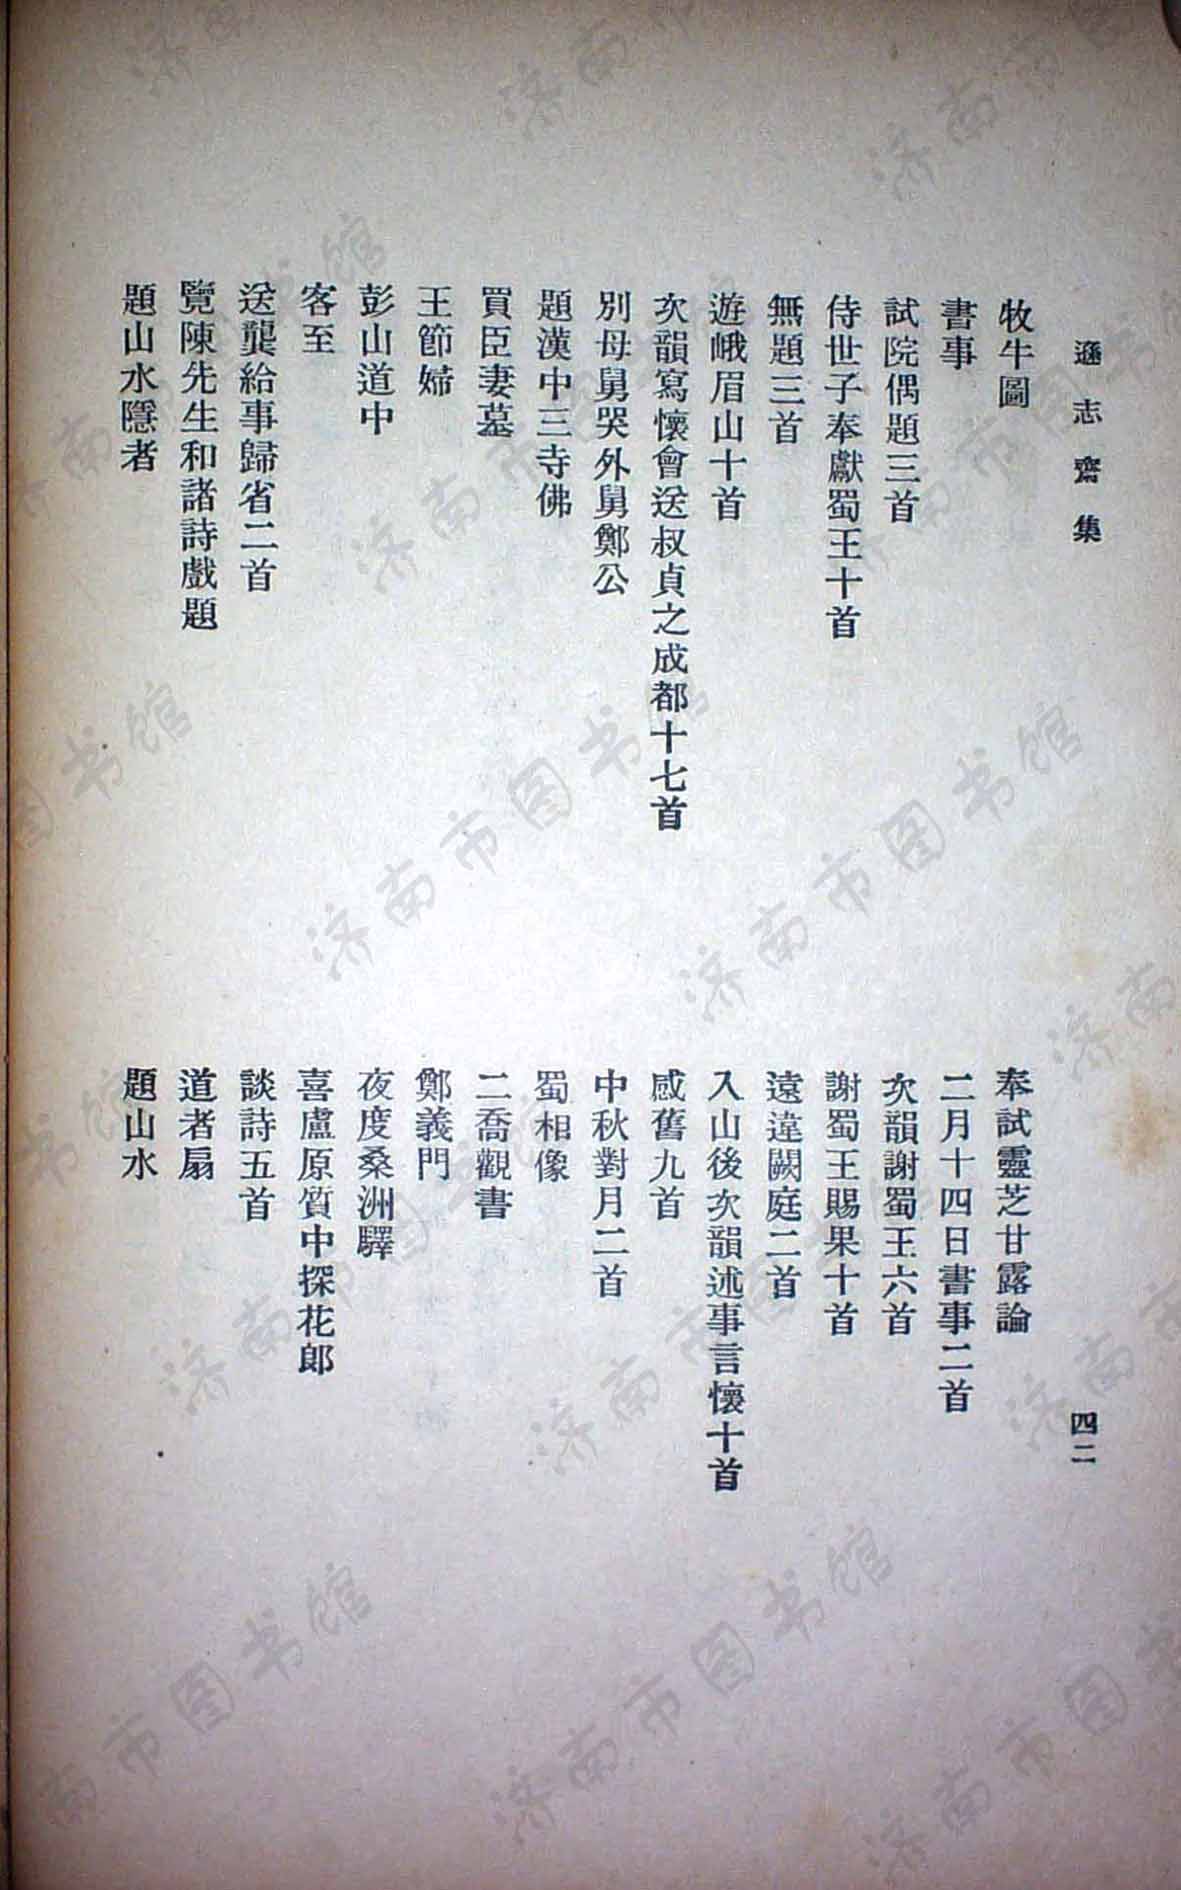 遜志齋集
四二
牧牛圖
奉試靈芝甘露論
書事
二月十四日書事二首
試院偶題三首
次韻謝蜀王六首
侍世子奉獻蜀王十首
謝蜀王賜果十首
無題三首
遠違闕庭二首
遊峨眉山十首
入山後次韻述事言懷十首
次韻寫懷會送叔貞之成都十七首
感舊九首
別母舅哭外舅鄭公
中秋對月二首
題漢中三寺佛
蜀相像
買臣妻墓
二喬觀書
王節婦
鄭義門
彭山道中
夜度桑洲驛
客至
喜盧原質中探花郎
送龔給事歸省二首
談詩五首
覽陳先生和諸詩戲題
道者扇
題山水隱者
題山水
济南市图书馆